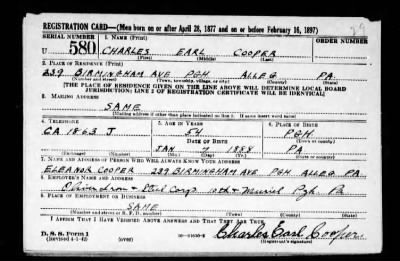 REGISTRATION CARD—(Men born on or after April 28, 1877 and on or before February 16, 1897)
SERIAL NUMBER 1. NAME (Print)
U 580 CHARLES EARL COOPER
(First) (Middle) (Last)
2. PLACE OF RESIDENCE (Print)
239 BIRMINGHAM AVE PGH ALLEG PA.
(Number and street) (Town, township, village, or city) (County) (State)
[THE PLACE OF RESIDENCE GIVEN ON THE LINE ABOVE WILL DETERMINE LOCAL BOARD
JURISDICTION; LINE 2 OF REGISTRATION CERTIFICATE WILL BE IDENTICAL]
3. MAILING ADDRESS
SAME
(Mailing address if other than place indicated on line 2. If same insert word same)
4. TELEPHONE 5. AGE IN YEARS 6. PLACE OF BIRTH
CA 1863 J 54 PGH
DATE OF BIRTH (Town or county)
JAN 7 1888 PA
(Exchange) (Number) (Mo.) (Day) (Yr.) (State or country)
7. NAME AND ADDRESS OF PERSON WHO WILL ALWAYS KNOW YOUR ADDRESS
ELEANOR COOPER 239 BIRMINGHAM AVE PGH ALLEG PA
8. EMPLOYER'S NAME AND ADDRESS
Oliver Iron & Steel Corp 10th & Muriel Pgh Pa
9. PLACE OF EMPLOYMENT OR BUSINESS
SAME
(Number and street or R. F. D. number) (Town) (County) (State)
I AFFIRM THAT I HAVE VERIFIED ABOVE ANSWERS AND THAT THEY ARE TRUE.
D. S. S. Form 1 Charles Earl Cooper
(Revised 4-1-42) (over) (Registrant's signature)